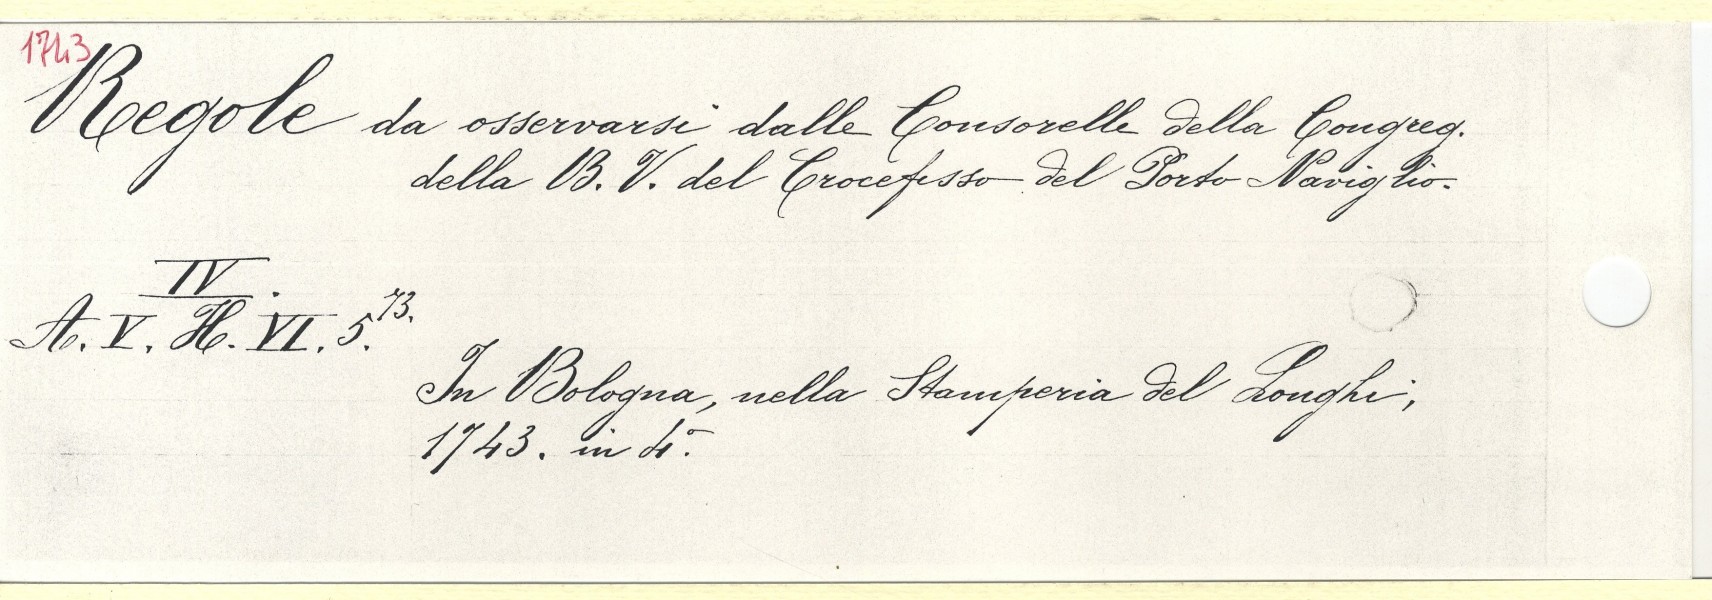 1743
Regole da osservarsi dalle Consorelle della Congreg.
della B. V. del Crocefisso del Porto Naviglio.
IV.
A. V. H. VI. 5.73.
In Bologna, nella Stamperia del Longhi,
1743. in 4.º